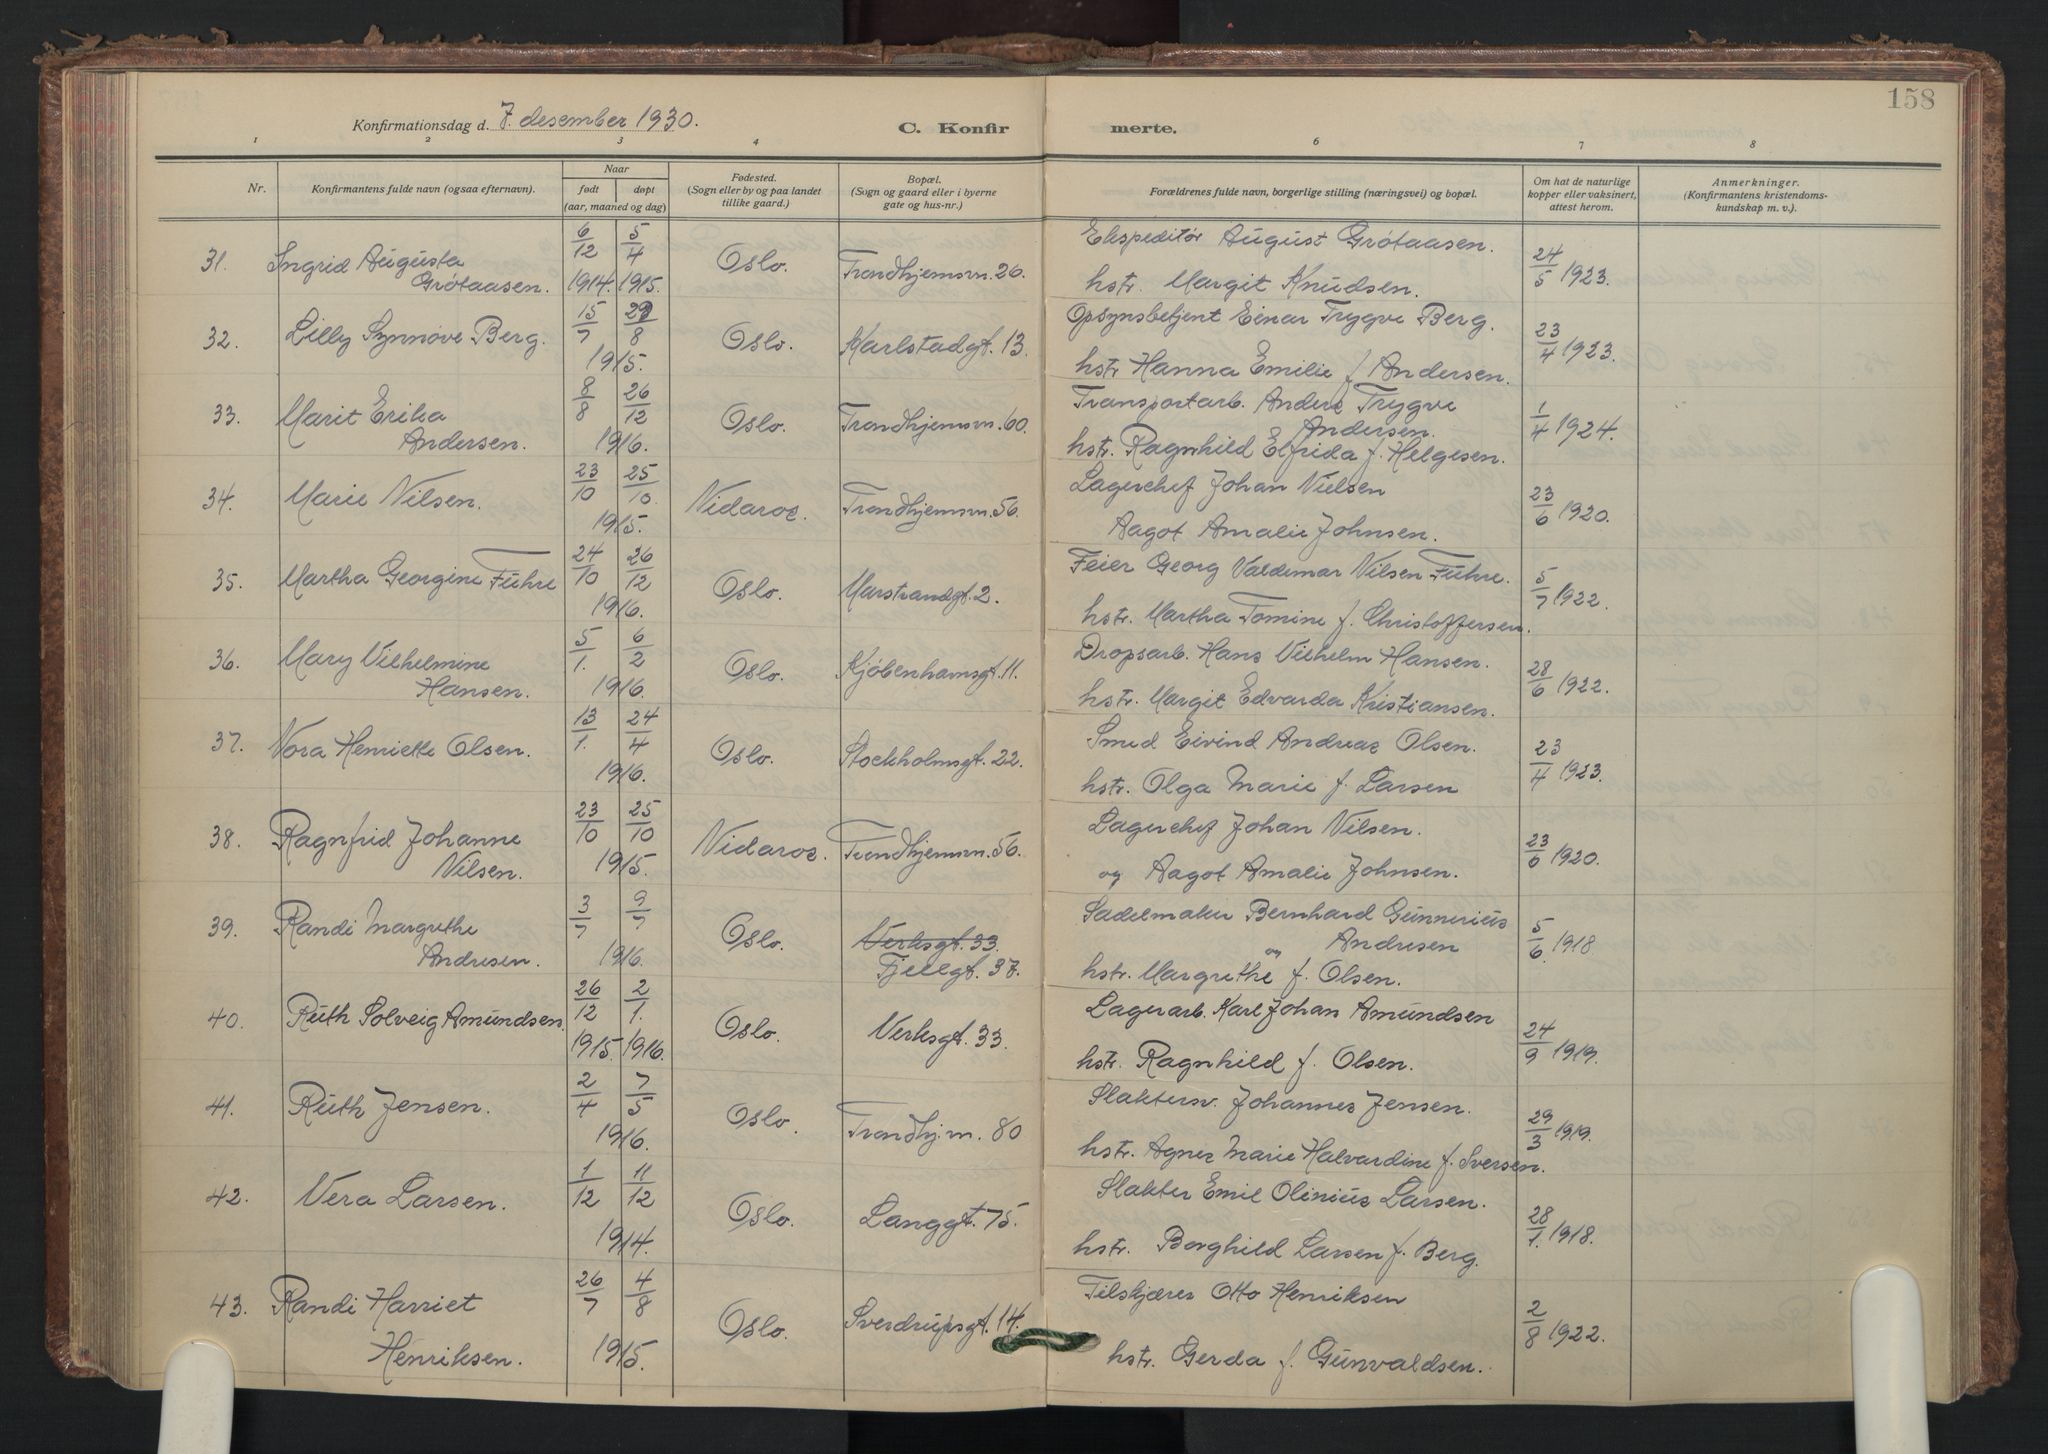 158
Konfirmationsdag d. 7. desember 1930. C. Konfir merte.
1 2 3 4 6 7 8
Nr. Konfirmantens fulde navn (ogsaa efternavn). Naar født døpt (aar, maaned og dag) Fødested. (Sogn eller by og paa landet tillike gaard.) Bopæl. (Sogn og gaard eller i byerne gate og hus-nr.) Forældrenes fulde navn, borgerlige stilling (næringsvei) og bopæl. Om hat de naturlige kopper eller vaksinert, attest herom. Anmerkninger. (Konfirmantens kristendomskundskap m. v.).
31. Ingrid Augusta Grótaasen. 6/12 1914. 5/4 1915. Oslo. Trondhjemsvn. 26. Ekspeditór August Grótaasen. 24/5 1923.
hstr. Margit Knudsen.
32. Lilly Synnøve Berg. 15/7 29/8 1915. Oslo. Karlstadgt. 13. Opsynsbetjent Einar Trygve Berg. 23/4 1923.
hstr. Hanna Emilie f. Andersen.
33. Marit Erika Andersen. 8/8 26/12 1916. Oslo. Trondhjemsvn. 60. Transportarb. Anders Trygve Andersen. 1/4 1924.
hstr. Ragnhild Elfrida f. Helgesen.
34. Marie Nilsen. 23/10 25/10. 1915. Nidaros. Trondhjemsvn. 56. Lagerchef Johan Nielsen 23/6 1920.
Aagot Amalie Johnsen.
35. Martha Georgine Fuhre 24/10 26/12 1916. Oslo. Marstrandgt. 2. Feier Georg Valdemar Nilsen Fuhre. 5/7 1922.
hstr. Martha Tomine f. Christoffersen.
36. Mary Vilhelmine Hansen. 5/1. 6/2 1916. Oslo. Kjøbenhavnsgt. 11. Dropsarb. Hans Vilhelm Hansen. 28/6 1922.
hstr. Margit Edvarda Kristiansen.
37. Nora Henriette Olsen. 13/1. 24/4 1916. Oslo. Stockholmsgt. 22. Smed Eivind Andreas Olsen. 23/4 1923.
hstr. Olga Marie f. Larsen
38. Ragnfrid Johanne Nilsen. 23/10 25/10 1915. Nidaros. Trondhjemsvn. 56. Lagerchef Johan Nilsen. 23/6 1920.
og Aagot Amalie Johnsen.
39. Randi Margrethe Andresen. 3/7 9/7 1916. Oslo. Verksgt. 33. Fjellgt. 37. Sadelmaker Bernhard Gunnerius Andresen 5/6. 1918
hstr. Margrethe og f. Olsen.
40. Ruth Solveig Amundsen. 26/12 1915. 2/1. 1916. Oslo. Verksgt. 33. Lagerarb. Karl Johan Amundsen 24/9 1919.
hstr. Ragnhild f. Olsen.
41. Ruth Jensen. 2/4 7/5 1916. Oslo. Trondhj.vn. 80 Slaktersv. Johannes Jensen. 29/3 1919.
hstr. Agnes Marie Halvardine f. Iversen.
42. Vera Larsen. 1/12 11/12 1914. Oslo. Langgt. 75. Slakter Emil Olinius Larsen. 28/1. 1918.
hstr. Borghild Larsen f. Berg.
43. Randi Harriet Henriksen. 26/7 4/8 1915. Oslo. Sverdrupsgt. 14. Tilskjærer Otto Henriksen 2/8 1922.
hstr. Gerda f. Gunvaldsen.